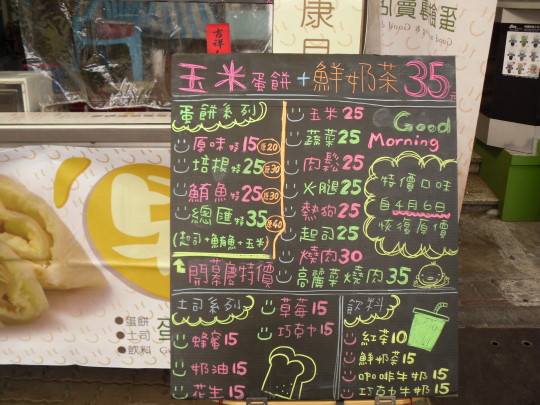 吉祥
康
玉米蛋餅+鮮奶茶35元
蛋餅系列
原味特15 原20
培根特25 原30
鮪魚特25 原30
總匯特35 原40
(起司+鮪魚+玉米)
開幕慶特價
玉米25
蔬菜25
肉鬆25
火腿25
熱狗25
起司25
燒肉30
高麗菜燒肉35
Good
Morning
特價口味
自4月6日
恢復原價
土司系列
蜂蜜15
奶油15
花生15
草莓15
巧克力15
飲料
紅茶10
鮮奶茶15
咖啡牛奶15
巧克力牛奶15
●蛋餅
●土司
●飲料